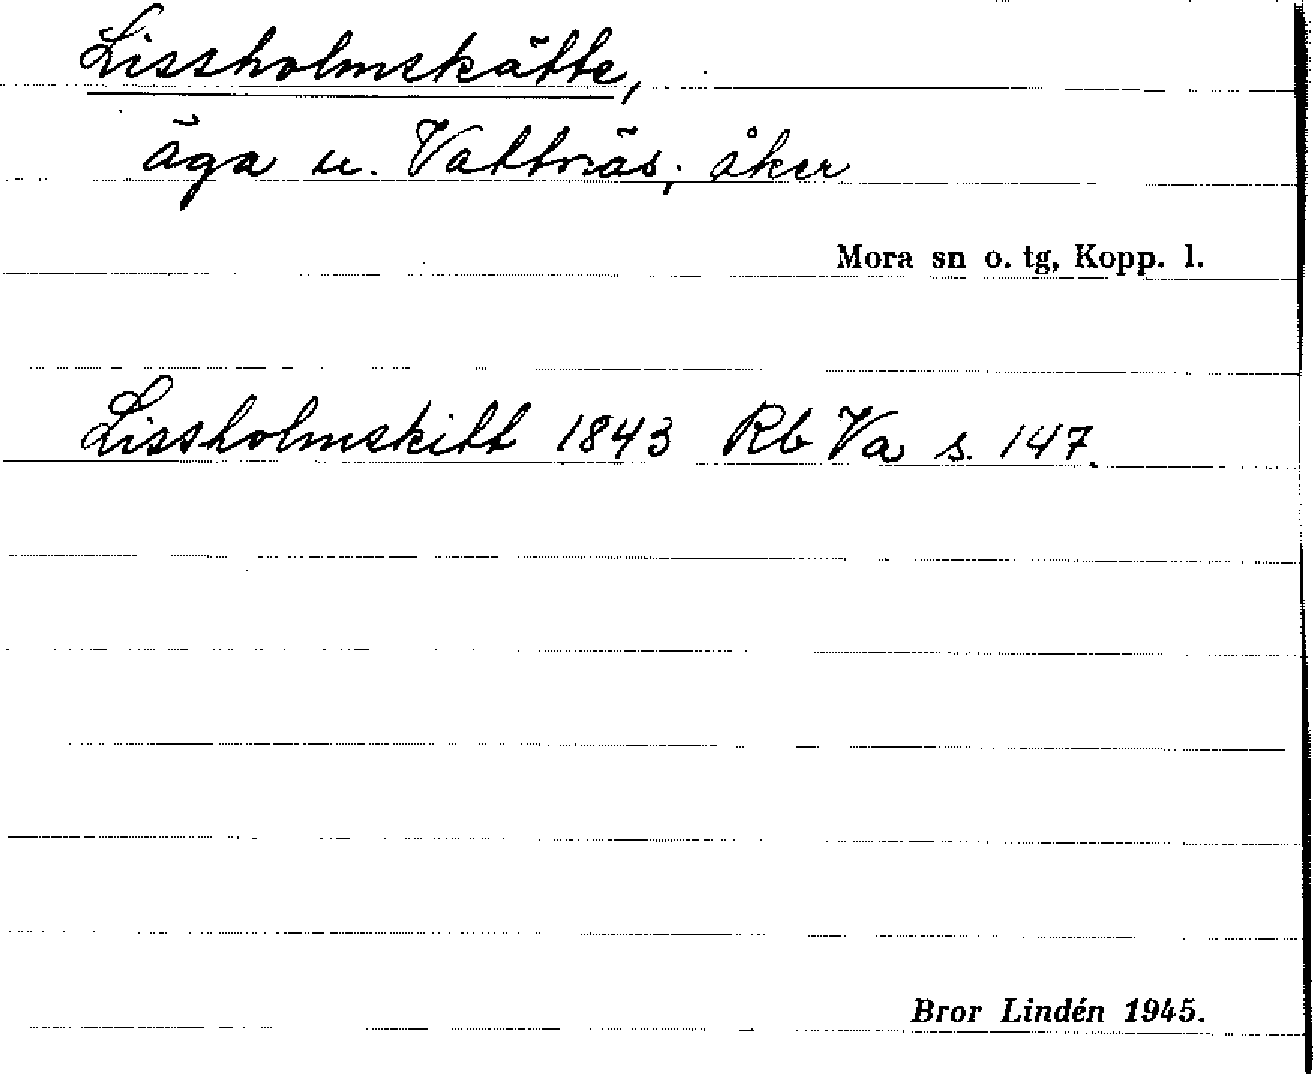 Lissholmskätte,
äga u. Vattnäs; åker
Mora sn o. tg, Kopp. l.
Lissholmskitt 1843 Rb Va s. 147.
Bror Lindén 1945.